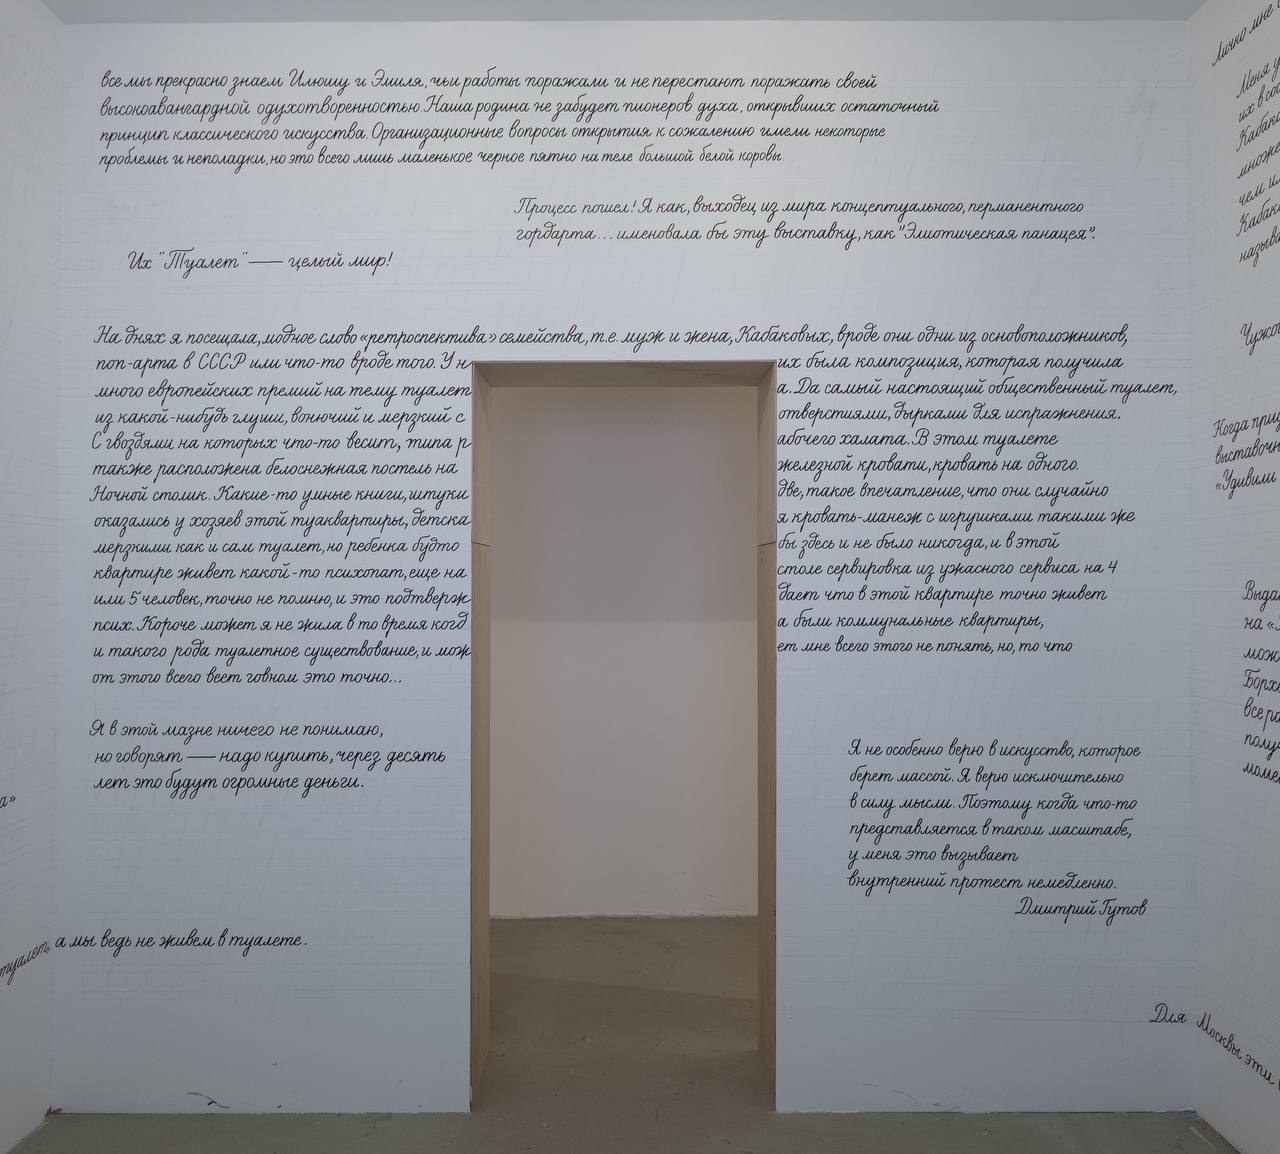 все мы прекрасно знаем Илюшу и Эмиля, чьи работы поражали и не перестают поражать своей
высокоавангардной одухотворенностью. Наша родина не забудет пионеров духа, открывших остаточный
принцип классического искусства. Организационные вопросы открытия к сожалению имели некоторые
проблемы и неполадки, но это всего лишь маленькое черное пятно на теле большой белой коровы.
Процесс пошел! Я как, выходец из мира концептуального, перманентного
гордарта... именовала бы эту выставку, как "Элиотическая панацея".
Их "Туалет" — целый мир!
На днях я посещала, модное слово «ретроспектива» семейства, т.е. муж и жена, Кабаковых, вроде они одни из основоположников,
поп-арта в СССР или что-то вроде того. У н их была композиция, которая получила
много европейских премий на тему туалет а. Да самый настоящий общественный туалет,
из какой-нибудь глуши, вонючий и мерзкий с отверстиями, дырками для испражнения.
С гвоздями на которых что-то весит, типа р абочего халата. В этом туалете
также расположена белоснежная постель на железной кровати, кровать на одного.
Ночной столик. Какие-то умные книги, штуки две, такое впечатление, что они случайно
оказались у хозяев этой туаквартиры, детска я кровать-манеж с игрушками такими же
мерзкими как и сам туалет, но ребенка будто бы здесь и не было никогда, и в этой
квартире живет какой-то психопат, еще на столе сервировка из ужасного сервиса на 4
или 5 человек, точно не помню, и это подтверж дает что в этой квартире точно живет
псих. Короче может я не жила в то время когд а были коммунальные квартиры,
и такого рода туалетное существование, и мож ет мне всего этого не понять, но, то что
от этого всего веет говном это точно...
Я в этой мазне ничего не понимаю,
но говорят — надо купить, через десять
лет это будут огромные деньги.
Я не особенно верю в искусство, которое
берет массой. Я верю исключительно
в силу мысли. Поэтому когда что-то
представляется в таком масштабе,
у меня это вызывает
внутренний протест немедленно.
Дмитрий Гутов
туалет, а мы ведь не живем в туалете.
Для Москвы эти
Лично мне
Меня у
их в соб
Кабако
множе
чем и
Кабако
называ
Чужо
Когда при
выставочн
«Удивили
Выда
на «
мож
Борх
все ра
полу
моме
а»